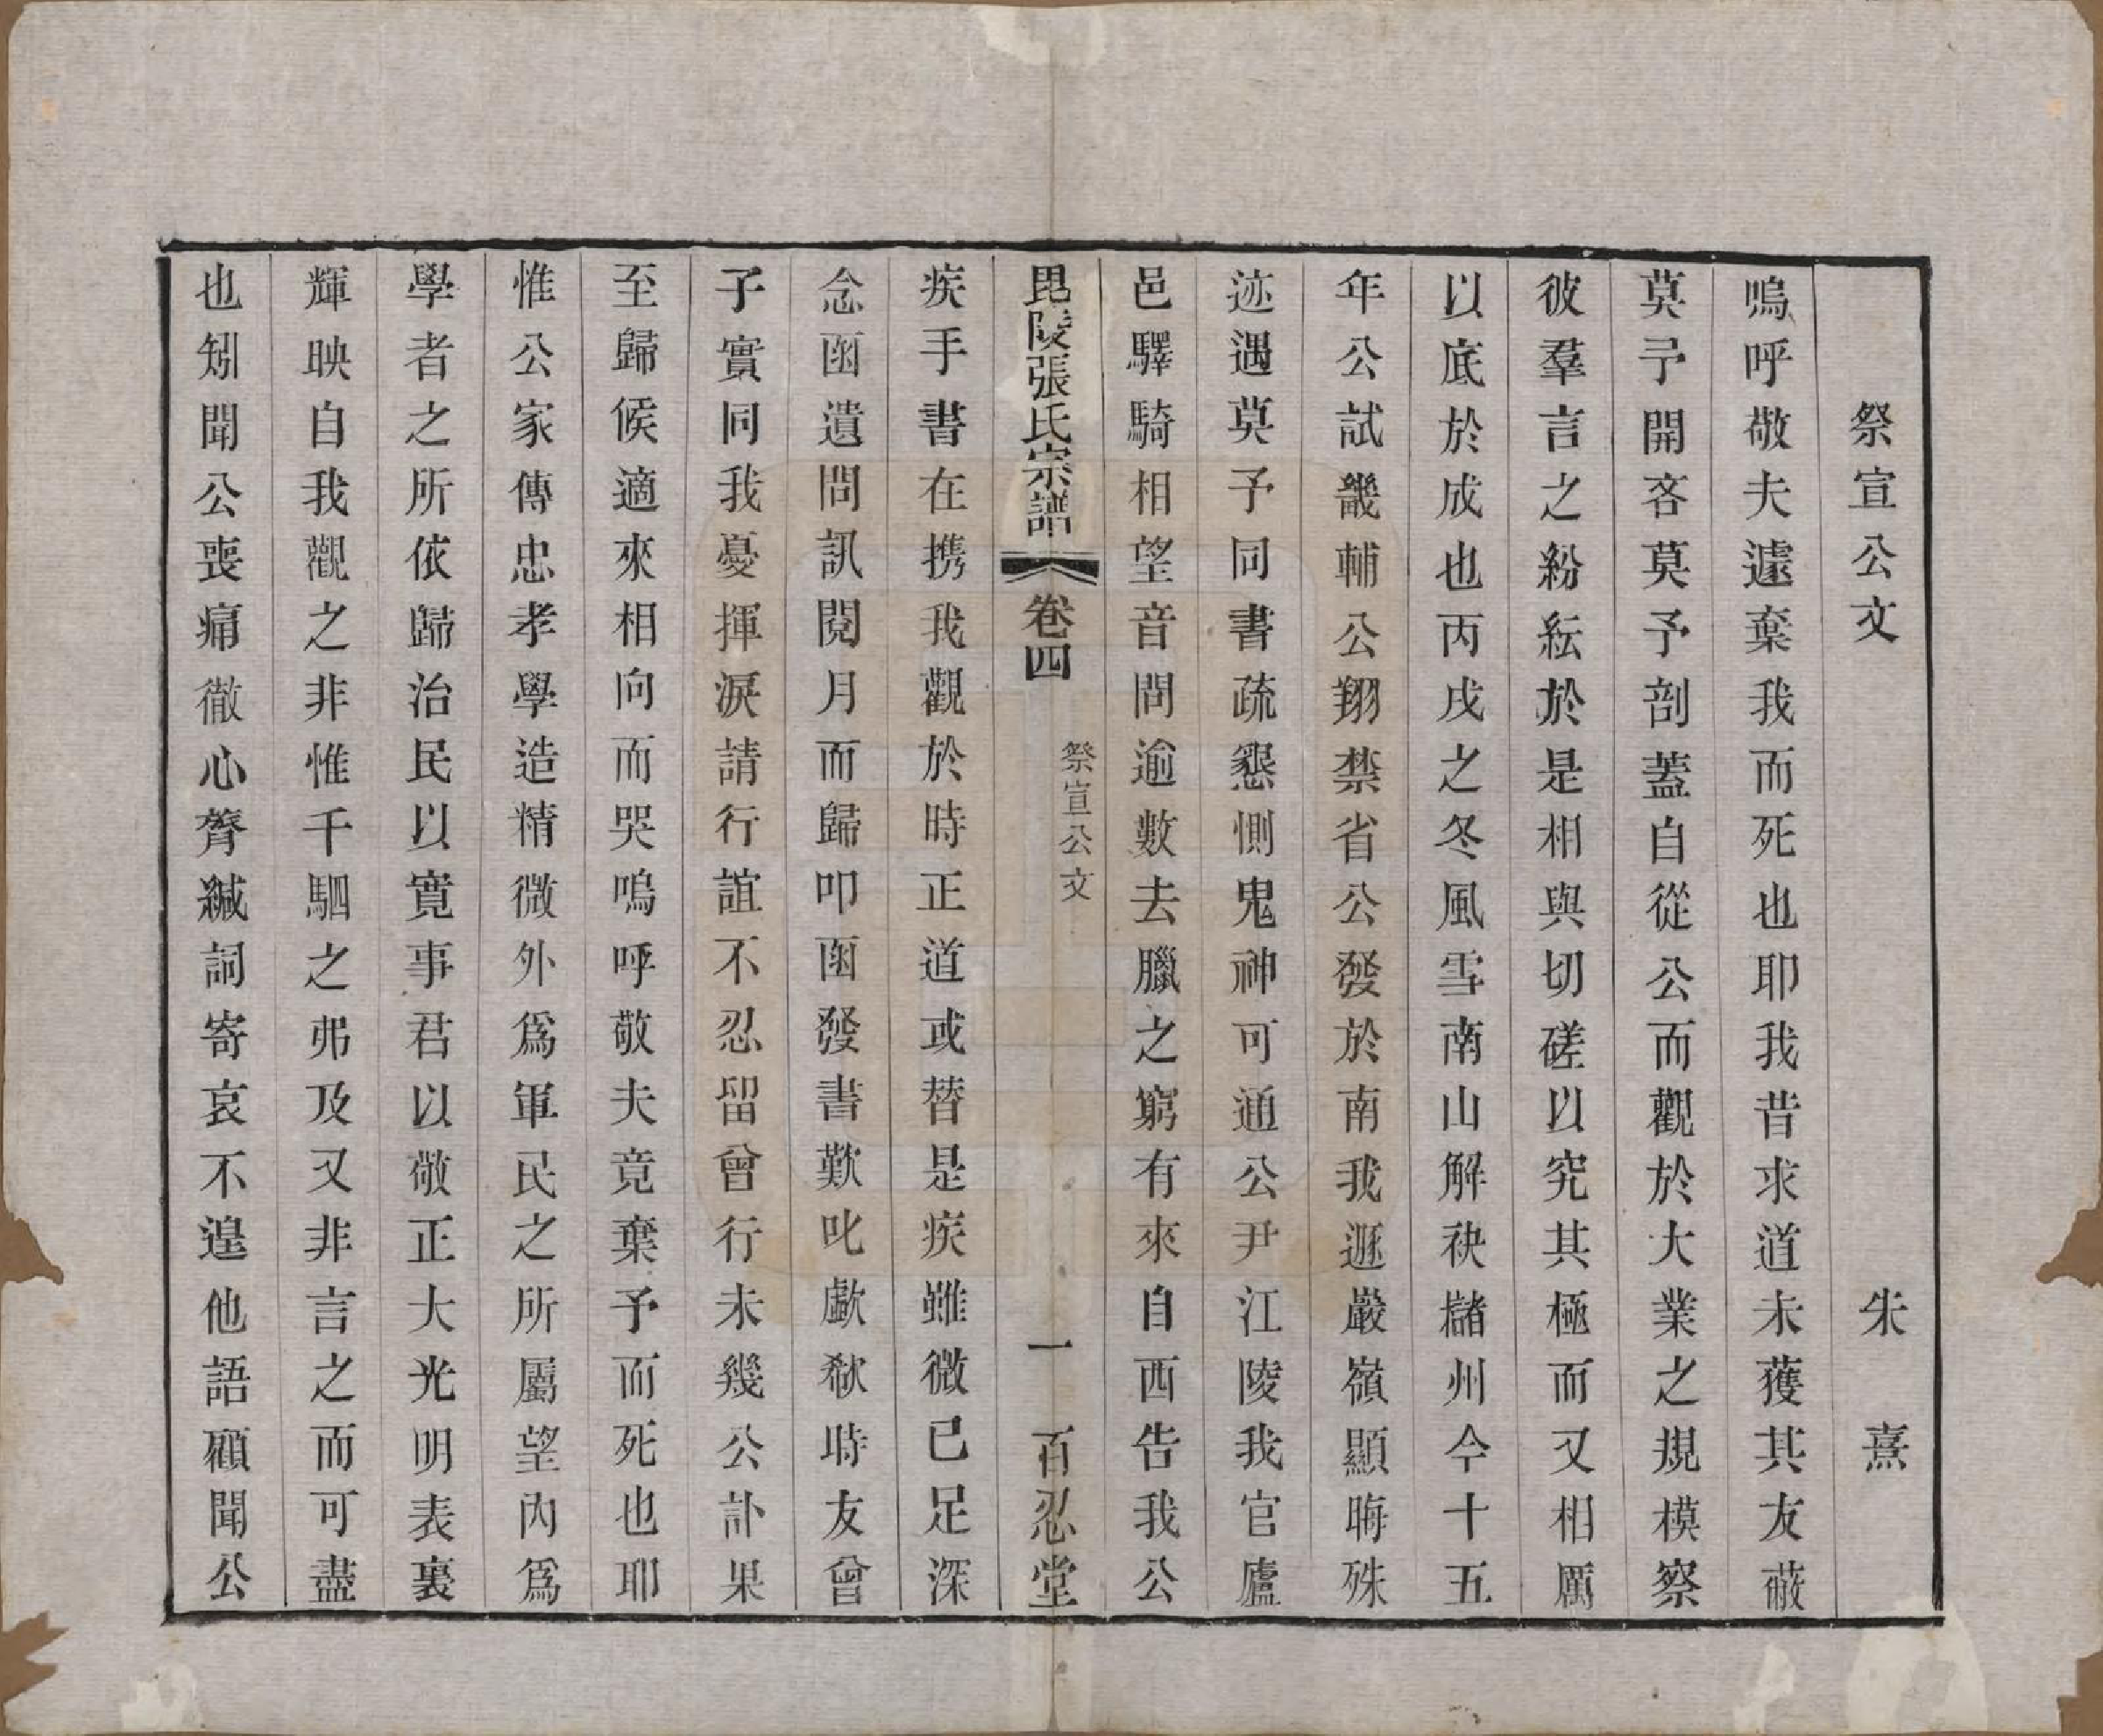 祭宣公文　朱熹
嗚呼敬夫遽棄我而死也耶我昔求道未獲其友蔽
莫予開吝莫予剖蓋自從公而觀於大業之規模察
彼羣言之紛紜於是相與切磋以究其極而又相厲
以底於成也丙戌之冬風雪南山解袂櫧州今十五
年公試畿輔公翔禁省公發於南我遯嚴嶺顯晦殊
迹遇莫予同書疏懇惻鬼神可通公尹江陵我官廬
邑驛騎相望音問逾數去臘之窮有來自西告我公
毘陵張氏宗譜　卷四　祭宣公文　一　百忍堂
疾手書在携我觀於時正道或替是疾雖微已足深
念函遺問訊閱月而歸叩函發書歎叱歔欷時友曾
子實同我憂揮淚請行誼不忍留曾行未幾公訃果
至歸候適來相向而哭嗚呼敬夫竟棄予而死也耶
惟公家傳忠孝學造精微外爲軍民之所屬望內爲
學者之所依歸治民以寬事君以敬正大光明表裏
輝映自我觀之非惟千駟之弗及又非言之而可盡
也矧聞公喪痛徹心膂緘詞寄哀不遑他語顧聞公